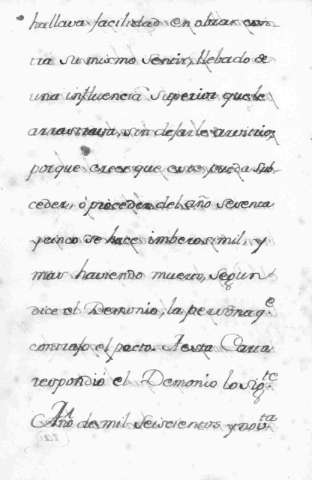 hallava facilidad en obrar con
tra su mismo sentir, llebado de
una influencia superior que le
arrastrava, sin dejarle arvitrio;
porque creer que esto pueda su-
ceder, ó proceder del año sesenta
y cinco se hace imberosimil, y
mas haviendo muerto, segun
dice el Demonio, la persona q.e
contrajo el pacto. A esta Carta
respondió el Demonio lo sig.te
Año de mil seiscientos y nov.ta